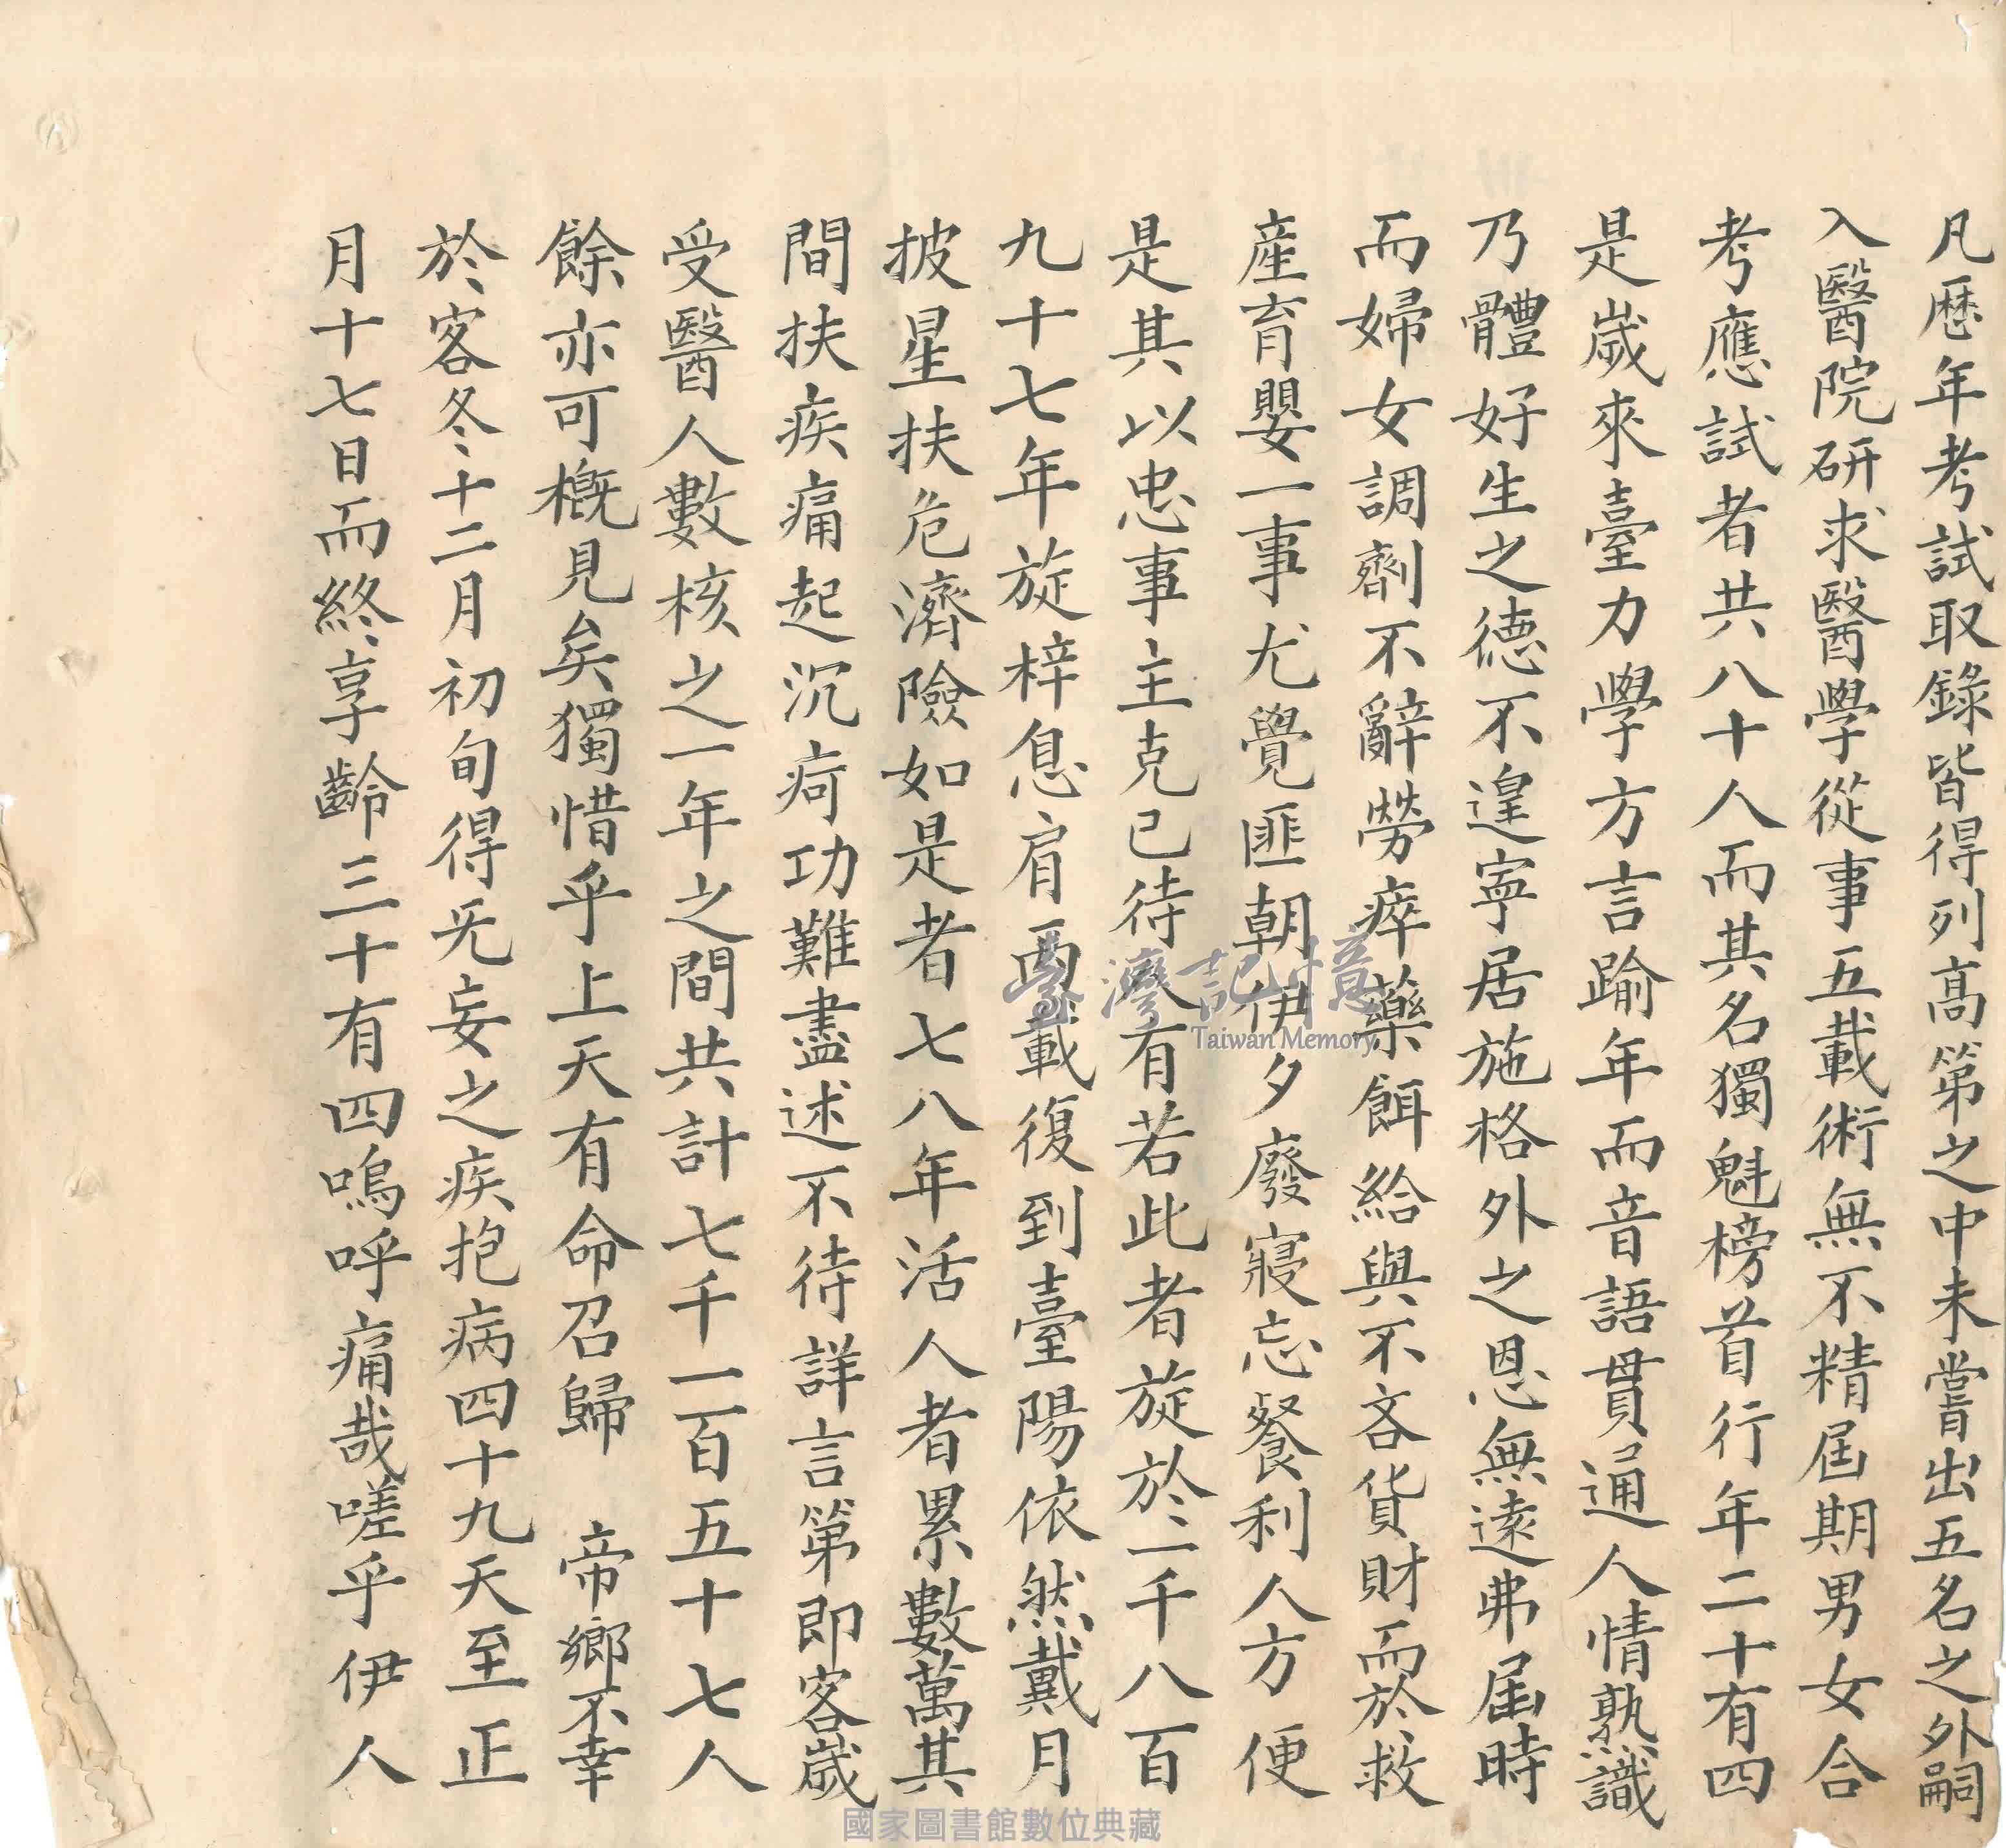 凡歷年考試取錄皆得列高第之中未嘗出五名之外嗣
入醫院研求醫學從事五載術無不精屆期男女合
考應試者共八十人而其名獨魁榜首行年二十有四
是歲來臺力學方言踰年而音語貫通人情熟識
乃體好生之德不遑寧居施格外之恩無遠弗屆時
而婦女調劑不辭勞瘁藥餌給與不吝貨財而於救
產育嬰一事尤覺匪朝伊夕廢寢忘餐利人方便
是其以忠事主克己待人有若此者旋於一千八百
九十七年旋梓息肩兩載復到臺陽依然戴月
披星扶危濟險如是者七八年活人者累數萬其
間扶疾痛起沉疴功難盡述不待詳言第即客歲
受醫人數核之一年之間共計七千一百五十七人
餘亦可概見矣獨惜乎上天有命召歸 帝鄉不幸
於客冬十二月初旬得旡妄之疾抱病四十九天至正
月十七日而終享齡三十有四嗚呼痛哉嗟乎伊人
臺灣記憶
Taiwan Memory
國家圖書館數位典藏